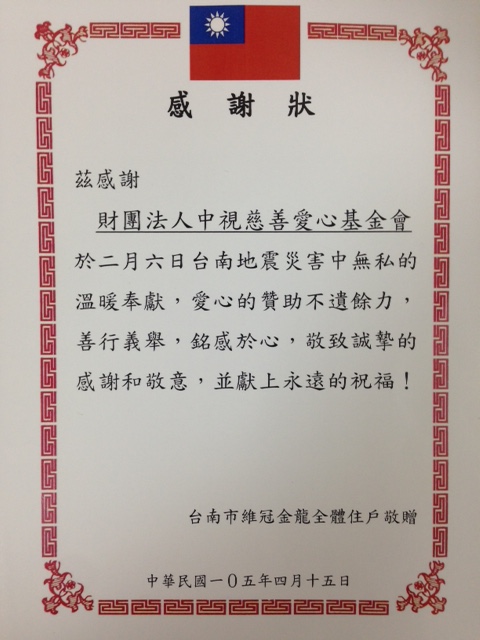 感謝狀
茲感謝
財團法人中視慈善愛心基金會
於二月六日台南地震災害中無私的
溫暖奉獻，愛心的贊助不遺餘力，
善行義舉，銘感於心，敬致誠摯的
感謝和敬意，並獻上永遠的祝福！
台南市維冠金龍全體住戶敬贈
中華民國一０五年四月十五日